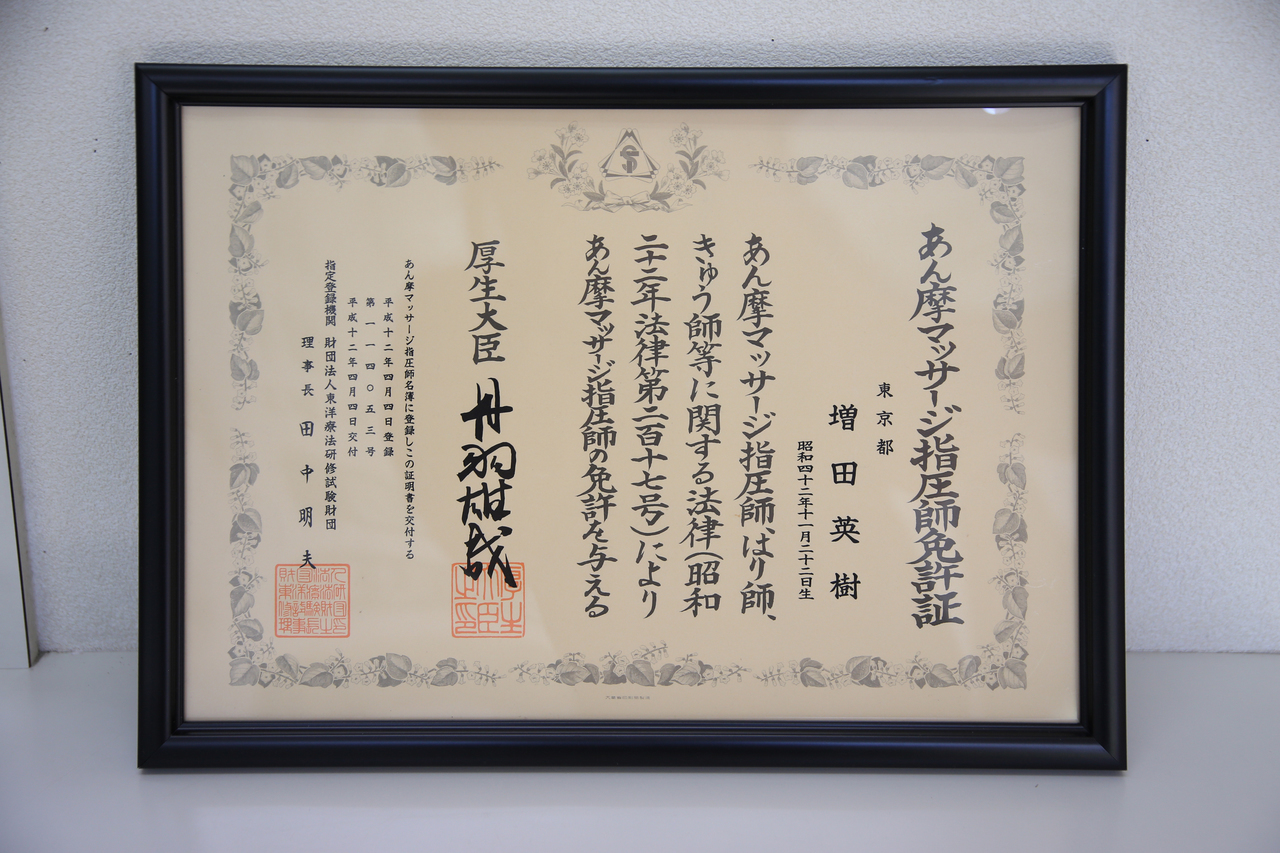 あん摩マッサージ指圧師免許証
東京都
増田英樹
昭和四十二年十一月二十二日生
あん摩マッサージ指圧師、はり師、
きゅう師等に関する法律(昭和
二十二年法律第二百十七号)により
あん摩マッサージ指圧師の免許を与える
厚生大臣 丹羽雄哉
あん摩マッサージ指圧師名簿に登録しこの証明書を交付する
平成十二年四月四日登録
第一一四〇五三号
平成十二年四月四日交付
指定登録機関 財団法人東洋療法研修試験財団
理事長 田中明夫